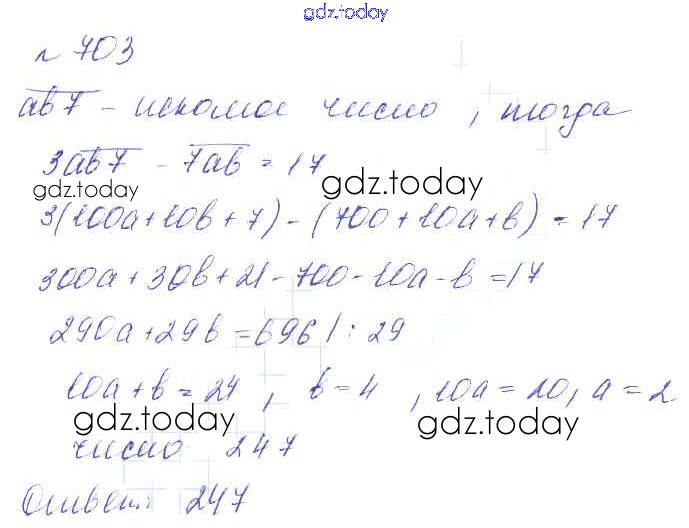 gdz.today
№ 703
ab7 - искомое число, тогда
3ab7 - 7ab = 17
gdz.today
gdz.today
3(100a+10b+7)-(700+10a+b) = 17
300a+30b+21-700-10a-b=17
290a+29b=696 / : 29
10a+b=24, b=4, 10a=20, a=2
gdz.today
gdz.today
число 247
Ответ: 247